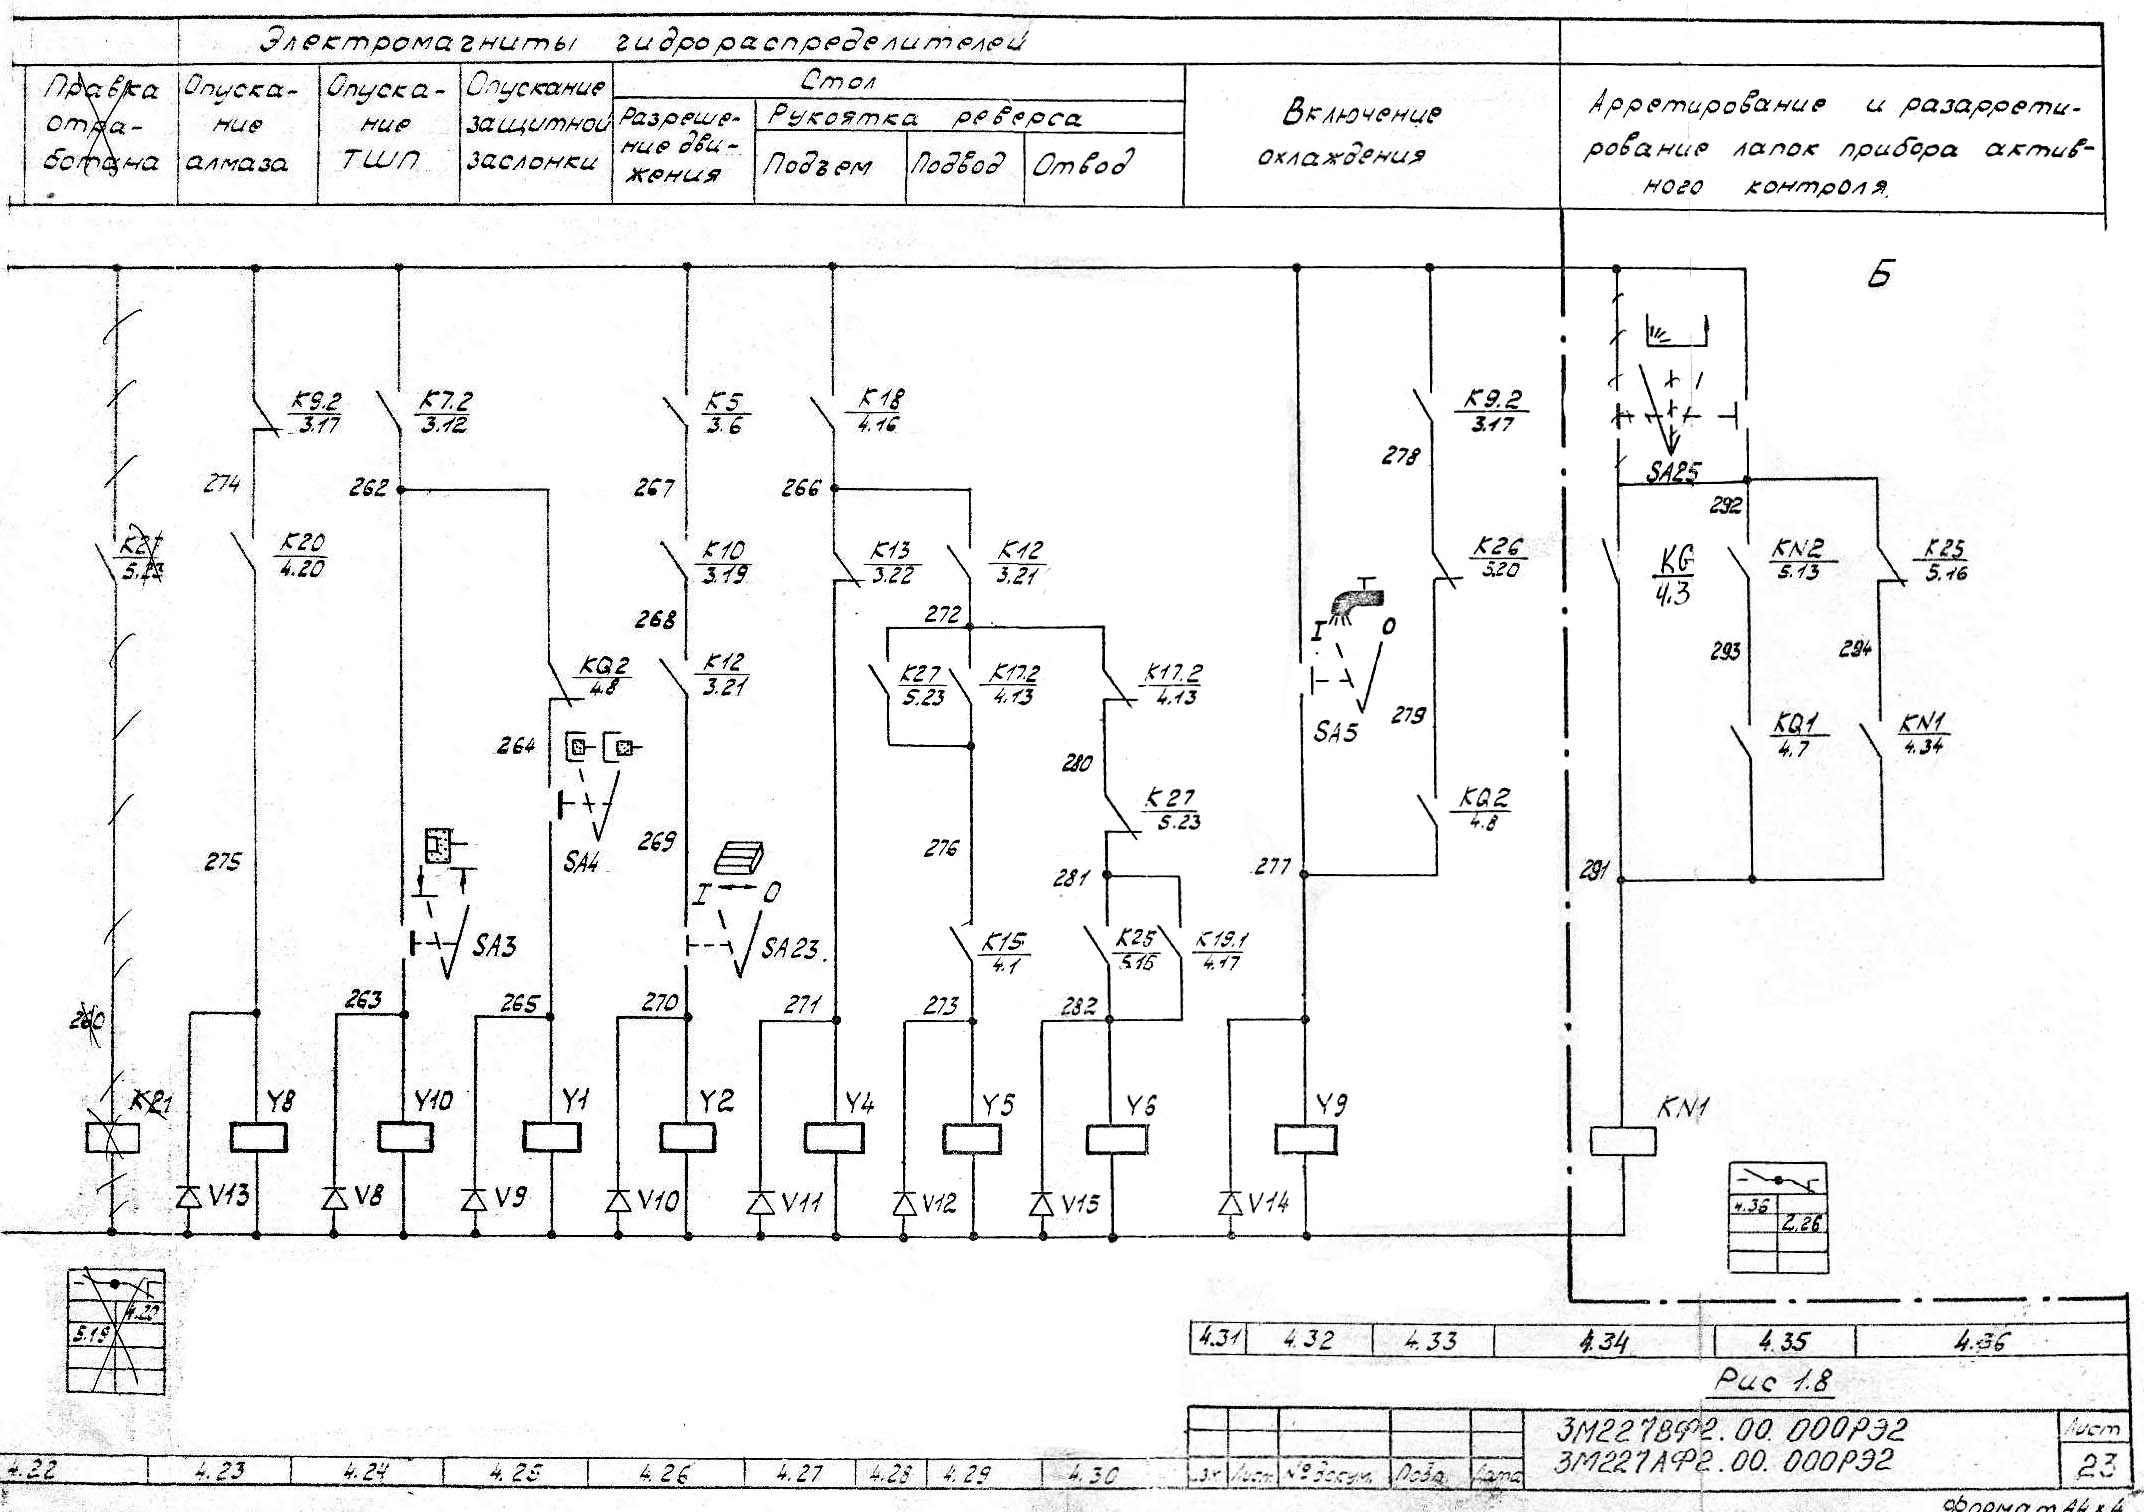 Электромагниты гидрораспределителей
Правка отра- ботана
Опуска- ние алмаза
Опуска- ние ТШП
Опускание защитной заслонки
Стол
Разреше- ние дви- жения
Рукоятка реверса
Подъем
Подвод
Отвод
Включение охлаждения
Арретирование и разаррети-
рование лапок прибора актив-
ного контроля.
Б
K9.2 3.17
K7.2 3.12
K5 3.6
K18 4.16
K9.2 3.17
278
SA25
274
262
267
266
292
K21 5.23
K20 4.20
K10 3.19
K13 3.22
K12 3.21
K26 5.20
K6 4.3
KN2 5.13
K25 5.16
268
272
I O
293
294
KQ2 4.8
K12 3.21
K27 5.23
K17.2 4.13
K17.2 4.13
279
SA5
264
280
KQ1 4.7
KN1 4.34
K27 5.23
KQ2 4.8
SA4
275
269
276
281
277
291
I O
SA3
SA23
K15 4.1
K25 5.16
K19.1 4.17
260
263
265
270
271
273
282
K21
Y8
Y10
Y1
Y2
Y4
Y5
Y6
Y9
KN1
V13
V8
V9
V10
V11
V12
V15
V14
4.36
2.26
4.20
5.19
4.31 4.32 4.33 4.34 4.35 4.36
Рис 1.8
3М227ВФ2.00.000РЭ2
3М227АФ2.00.000РЭ2
Лист
23
Изм Лист № докум. Подп. Дата
4.22 4.23 4.24 4.25 4.26 4.27 4.28 4.29 4.30
Формат А4х4